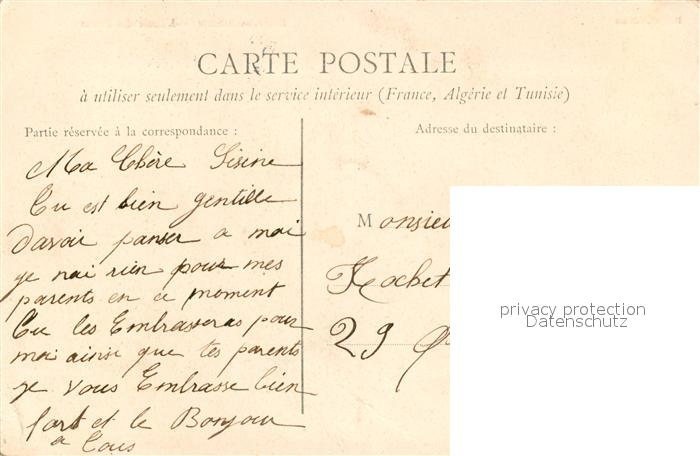 CARTE POSTALE
à utiliser seulement dans le service intérieur (France, Algérie et Tunisie)
Partie réservée à la correspondance :
Adresse du destinataire :
Ma Chère Sisine
Tu est bien gentille
davoir panser a moi
je nai rien pour mes
parents en ce moment
Tu les Embrasseras pour
moi ainsi que tes parents
je vous Embrasse bien
fort et le Bonjour
a Tous
Monsieu
Rochet
29
privacy protection
Datenschutz